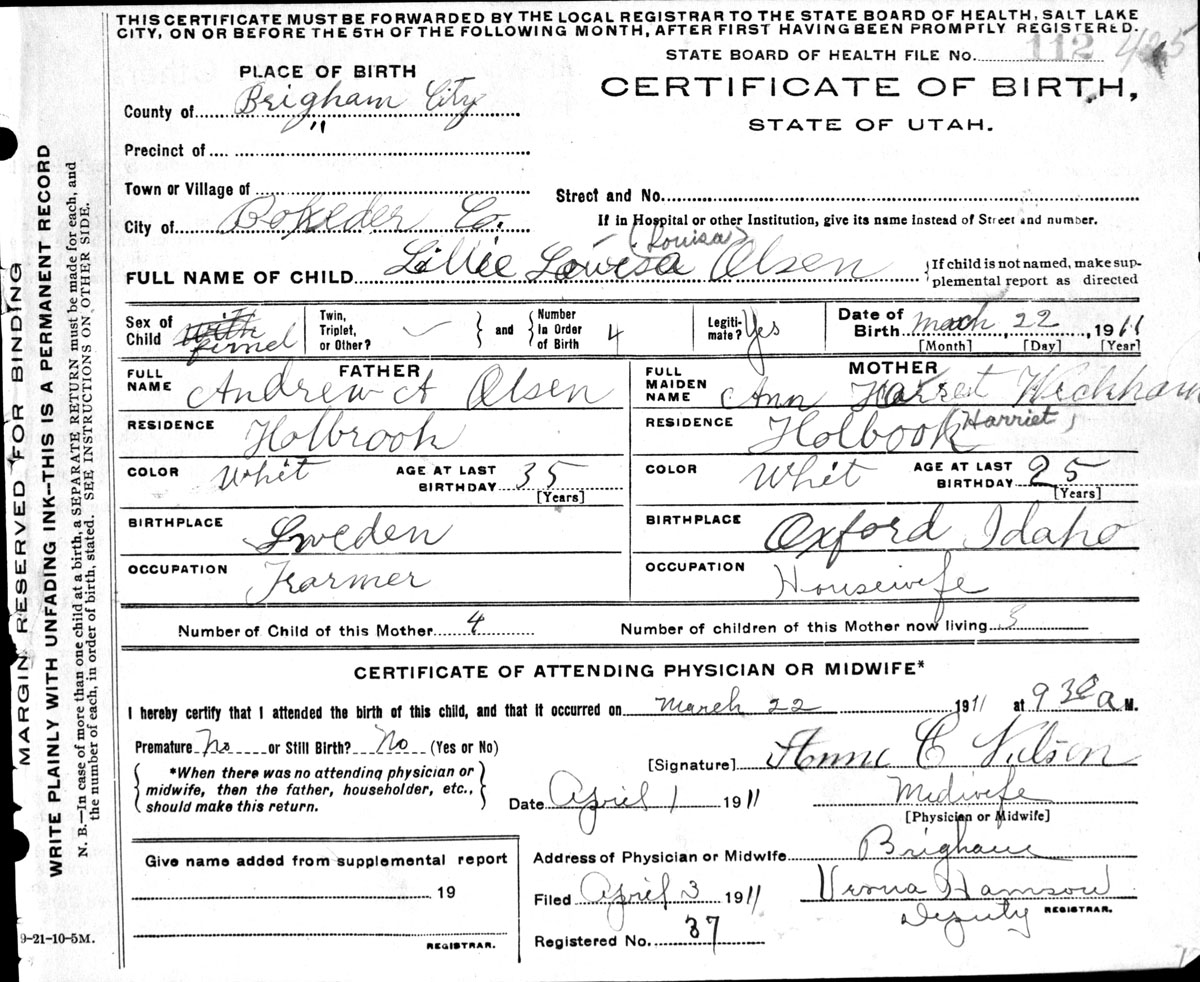 THIS CERTIFICATE MUST BE FORWARDED BY THE LOCAL REGISTRAR TO THE STATE BOARD OF HEALTH, SALT LAKE
CITY, ON OR BEFORE THE 5TH OF THE FOLLOWING MONTH, AFTER FIRST HAVING BEEN PROMPTLY REGISTERED.
STATE BOARD OF HEALTH FILE No. 112 425
PLACE OF BIRTH
CERTIFICATE OF BIRTH,
STATE OF UTAH.
County of Brigham City
Precinct of "
Town or Village of
Street and No.
City of Boxeder Co.
If in Hospital or other Institution, give its name instead of Street and number.
(Louisa)
FULL NAME OF CHILD Lillie Lowisa Olsen
{If child is not named, make sup-
plemental report as directed
Sex of Child femel
Twin, Triplet, or Other?
and
Number In Order of Birth 4
Legiti- mate? Yes
Date of Birth March 22, 1911
[Month] [Day] [Year]
FATHER
FULL NAME Andrew A Olsen
RESIDENCE Holbrook
COLOR Whit
AGE AT LAST BIRTHDAY 35
[Years]
BIRTHPLACE Sweden
OCCUPATION Farmer
MOTHER
FULL MAIDEN NAME Ann Harret Wickham
Harriet
RESIDENCE Holbook
COLOR Whit
AGE AT LAST BIRTHDAY 25
[Years]
BIRTHPLACE Oxford Idaho
OCCUPATION Housewife
Number of Child of this Mother 4
Number of children of this Mother now living 3
CERTIFICATE OF ATTENDING PHYSICIAN OR MIDWIFE*
I hereby certify that I attended the birth of this child, and that it occurred on March 22 1911 at 9 30 a M.
Premature No or Still Birth? No (Yes or No)
*When there was no attending physician or
midwife, then the father, householder, etc.,
should make this return.
[Signature] Anne C Nielsen
Date April 1 1911
Midwife
[Physician or Midwife]
Give name added from supplemental report
19
REGISTRAR.
Address of Physician or Midwife Brigham
Filed April 3 1911
Verna Hamson
Deputy REGISTRAR.
Registered No. 37
9-21-10-5M.
MARGIN RESERVED FOR BINDING
WRITE PLAINLY WITH UNFADING INK—THIS IS A PERMANENT RECORD
N. B.—In case of more than one child at a birth, a SEPARATE RETURN must be made for each, and
the number of each, in order of birth, stated. SEE INSTRUCTIONS ON OTHER SIDE.